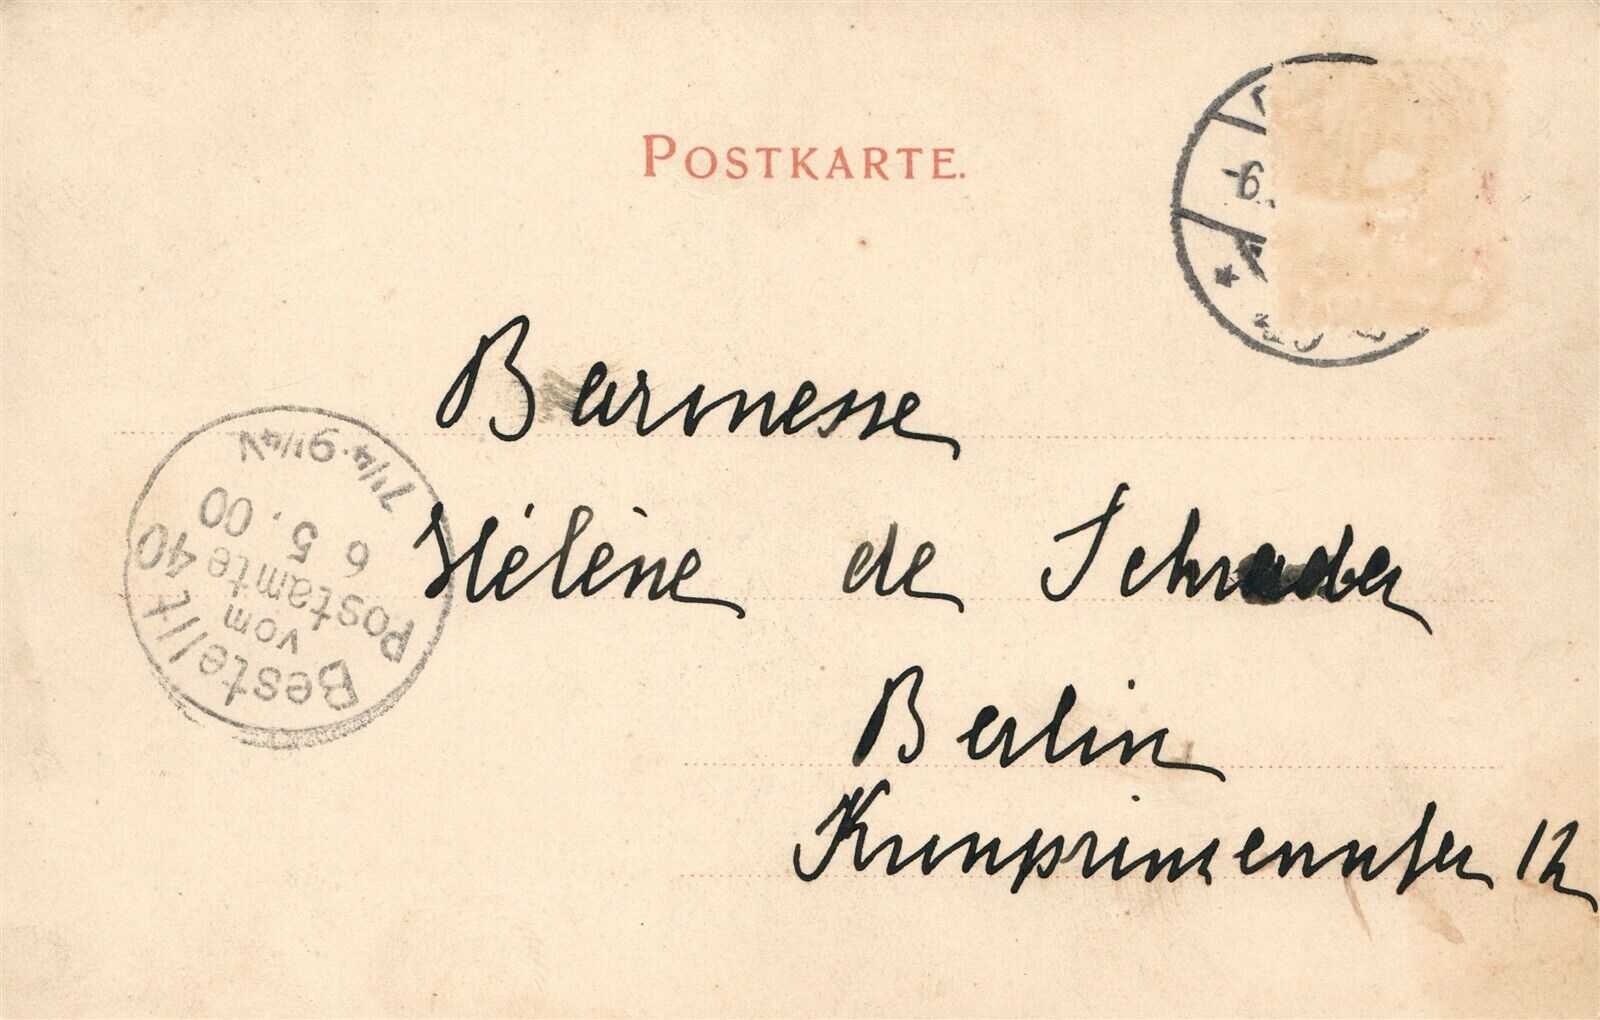 POSTKARTE.
Baronesse
Hélène de Schrader
Berlin
Kronprinzenufer 12
Bestellt
vom
Postamte 40
6 5.00
7 1/4-9 1/4 V